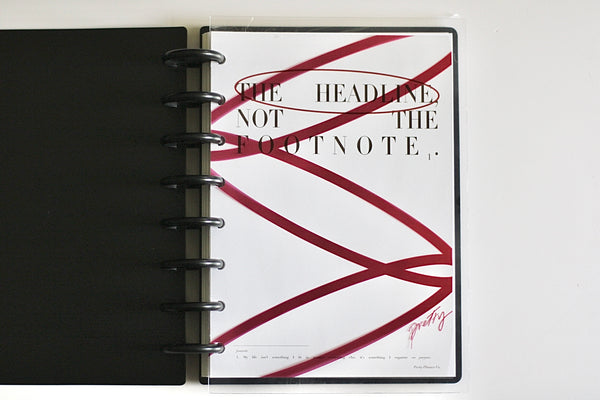 THE HEADLINE,
NOT THE
FOOTNOTE1.
pretty
1. My life isn't something I do else, it's something I organize on purpose.
Pretty Planner Co.